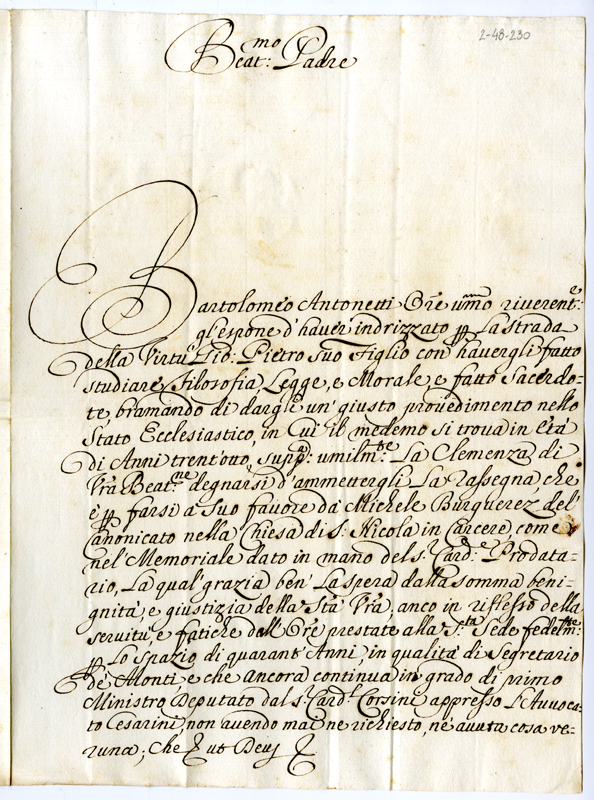 2-48-230
Beat:mo Padre
Bartolomeo Antonetti Ore umo riverente:
gl'espone d'haver indrizzato p La strada
della Virtù Gio: Pietro suo Figlio con havergli fatto
studiare, Filosofia, Legge, e Morale, e fatto Sacerdo-
te, bramando di dargli un' giusto provedimento nello
Stato Ecclesiastico, in Cui il medemo si trova in età
di Anni trent'otto, suppca: umilmte: La Clemenza di
Vra Beatne: degnarsi d'ammettergli La rassegna, che
è p farsi a suo favore da Michele Burguerez del
Canonicato nella Chiesa di S: Nicola in Carcere, come
nel' Memoriale dato in mano del S: Carde: Prodata-
rio, La qual' grazia ben' La spera dalla somma beni-
gnità, e giustizia della Stà Vra, anco in riflesso della
servitù, e fatiche dall' Ore prestate alla Sta: Sede fedelmte:
p Lo spazio di quarant' Anni, in qualità di Segretario
de' Monti, e che ancora continua in grado di primo
Ministro Deputato dal S: Card: Corsini appresso L'Avvoca-
to Cesarini, non avendo mai ne richiesto, nè avuta cosa ve-
runa; Che ut Deus